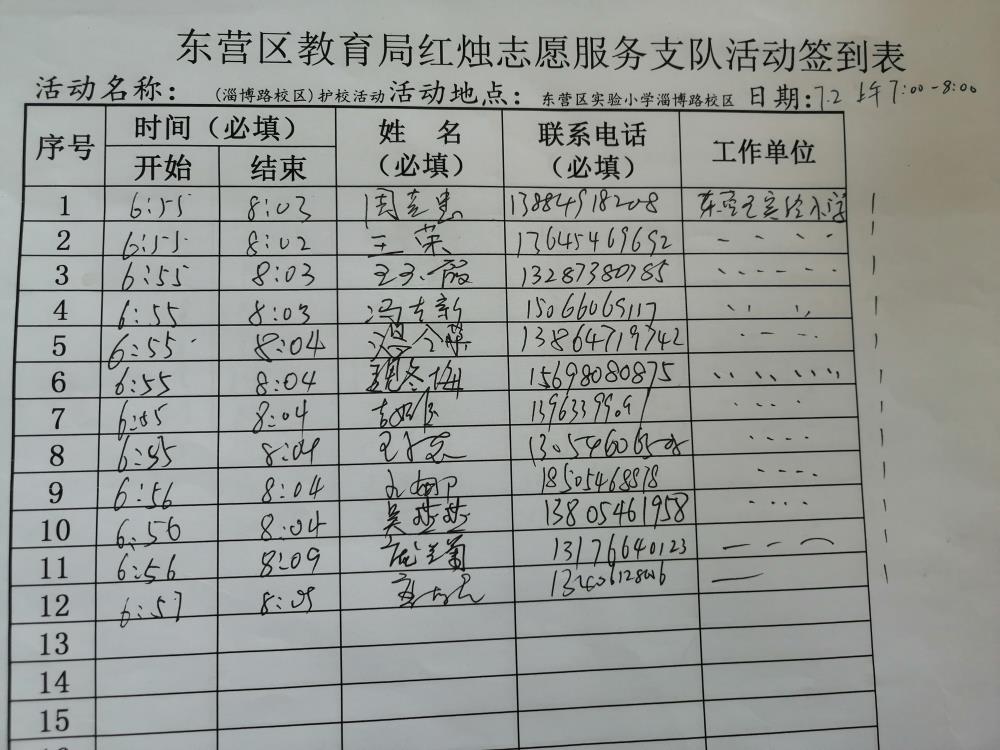 东营区教育局红烛志愿服务支队活动签到表
活动名称： (淄博路校区)护校活动 活动地点： 东营区实验小学淄博路校区 日期:7.2 上午7:00-8:00
序号 时间（必填） 姓 名（必填） 联系电话（必填） 工作单位
开始 结束
1 6:55 8:03 13884918208 东营区实验小学
2 6:55 8:02 王荣 13645469692
3 6:55 8:03 13287380785
4 6:55 8:03 15066069117
5 6:55 8:04 13864719742
6 6:55 8:04 15698080875
7 6:55 8:04
8 6:55 8:04
9 6:56 8:04 18505468818
10 6:56 8:04 13805461958
11 6:56 8:09 13176640123
12 6:57 8:05
13
14
15